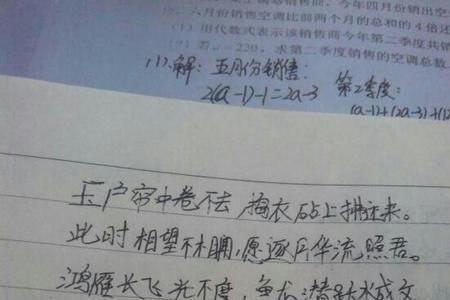 空调器销售商，今年四月份销出空
六月份销售空调比前两个月的总和的4倍还
(1) 用代数式表示该销售商今年第二季度共销
(2) 若a=220，求第二季度销售的空调总数
(1).解：五月份销售： 第2季度：
2(a-1)-1=2a-3 (a-1)+(2a-3)+(12
玉户帘中卷不去，捣衣砧上拂还来。
此时相望不相闻，愿逐月华流照君。
鸿雁长飞光不度，鱼龙潜跃水成文